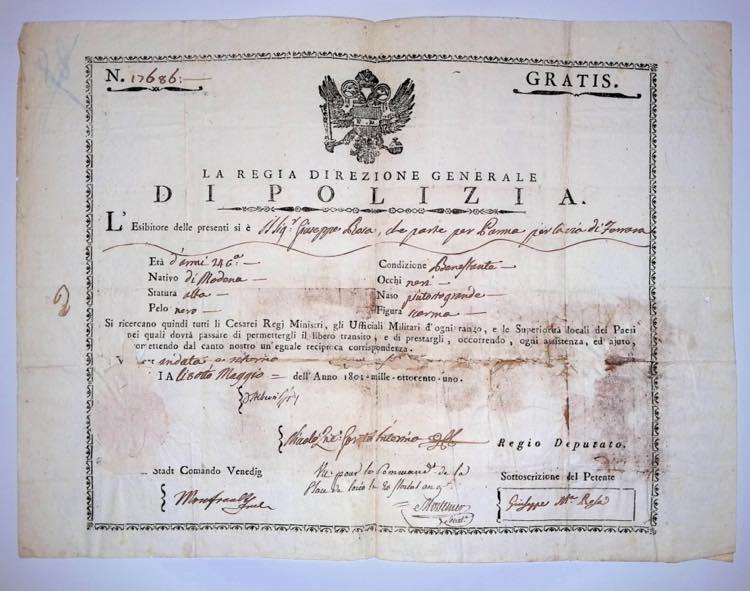 N. 17686:
GRATIS.
LA REGIA DIREZIONE GENERALE
DI POLIZIA.
L' Esibitore delle presenti si è il Sigr. Giuseppe Rosa, che parte per Parma per la via di Ferrara
Età d'anni 24
Condizione Benestante
Nativo di Modena
Occhi neri
Statura alta
Naso piutosto grande
Pelo nero
Figura scarma
Si ricercano quindi tutti li Cesarei Regj Ministri, gli Ufficiali Militari d'ogni ranzo, e le Superiorità locali dei Paesi
nei quali dovrà passare di permettergli il libero transito, e di prestargli, occorrendo, ogni assistenza, ed ajuto,
offrettendo dal canto nostro un'eguale reciproca corrispondenza.
V andata e ritorno
IA li Maggio dell' Anno 1801. mille-ottocento-uno.
Regio Deputato.
Stadt Comando Venedig
Vu pour le Command. de la
Place de le
Sottoscrizione del Petente
Giuseppe Ma. Rosa